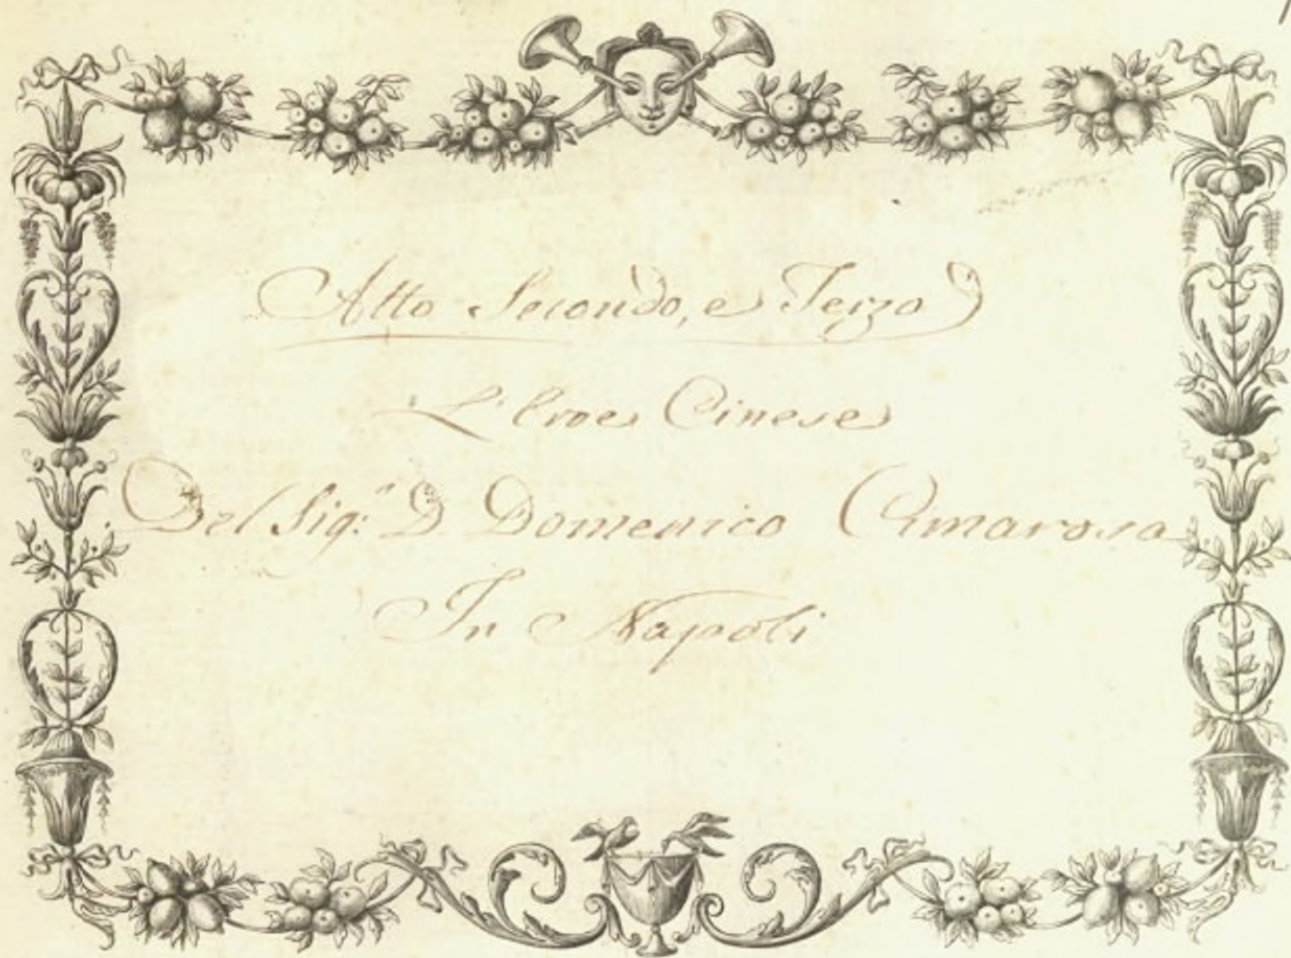 Atto Secondo, e Terzo
L'Eroe Cinese
Del Sig.ʳ D. Domenico Cimarosa
In Napoli